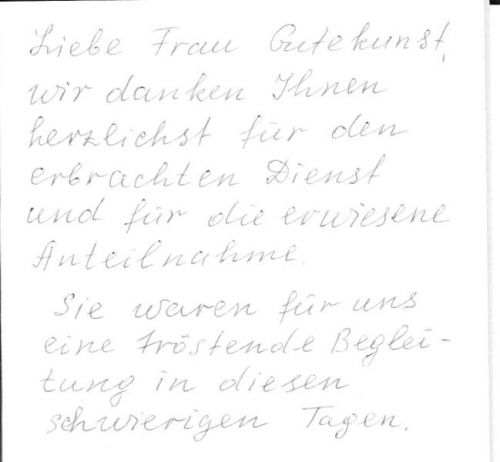 Liebe Frau Gutekunst,
wir danken Ihnen
herzlichst für den
erbrachten Dienst
und für die erwiesene
Anteilnahme.
Sie waren für uns
eine tröstende Beglei-
tung in diesen
schwierigen Tagen.